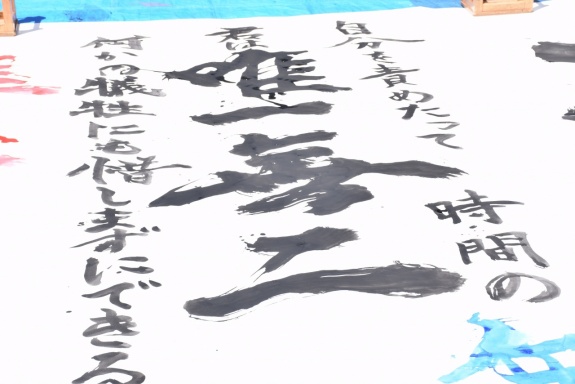 自分を責めたって
時間の
君は
唯一無二
何かの犠牲にも倍しまずにできる